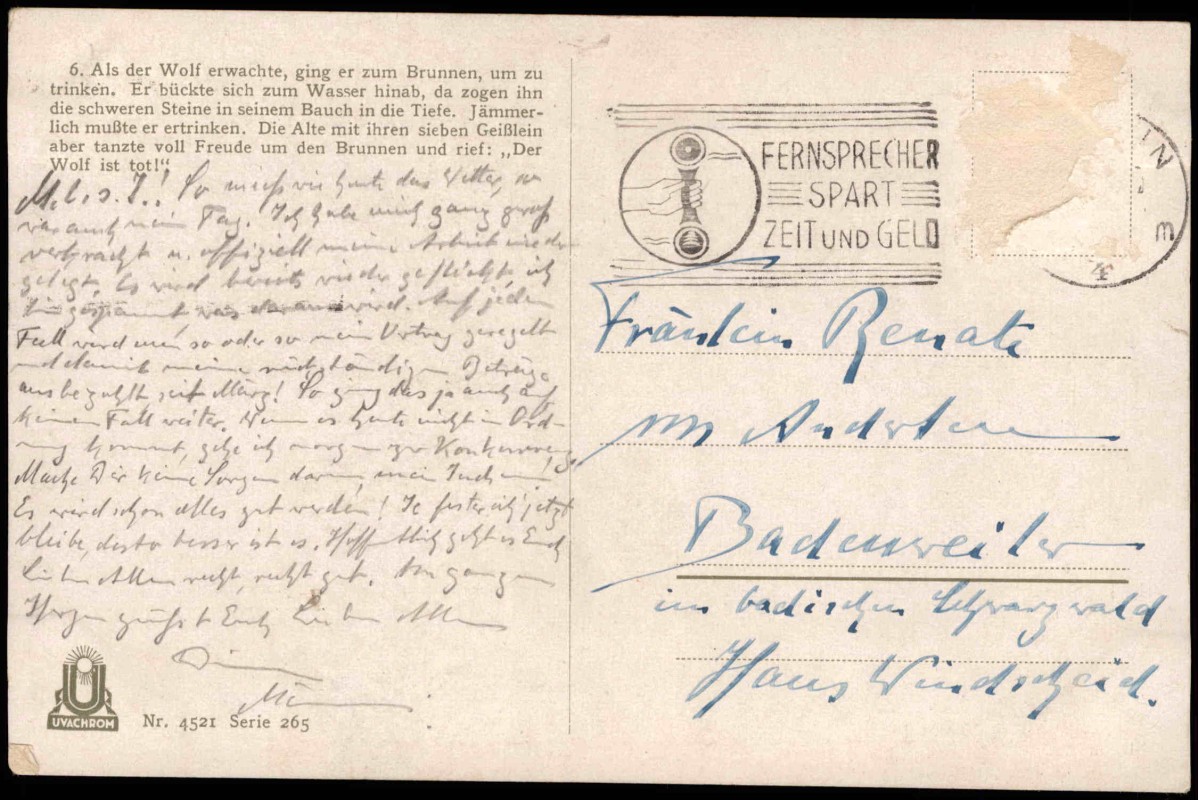 6. Als der Wolf erwachte, ging er zum Brunnen, um zu
trinken. Er bückte sich zum Wasser hinab, da zogen ihn
die schweren Steine in seinem Bauch in die Tiefe. Jämmer-
lich mußte er ertrinken. Die Alte mit ihren sieben Geißlein
aber tanzte voll Freude um den Brunnen und rief: „Der
Wolf ist tot!“
M. l. s. I.! So mies wie heute das Wetter, so
war auch mein Tag. Ich habe mich ganz groß
verkracht u. offiziell meine Arbeit nieder-
gelegt. Es wird bereits wieder geflickt, ich
bin gespannt was daraus wird. Auf jeden
Fall wird nun so oder so mein Vertrag geregelt
und damit meine rückständigen Beträge
ausbezahlt seit März! So ging das ja auch auf
keinen Fall weiter. Wenn es heute nicht in Ord-
nung kommt, gehe ich morgen zur Konkurrenz.
Mache Dir keine Sorgen darum, mein
Es wird schon alles gut werden! Je fester ich jetzt
bleibe, desto besser ist es. Hoffentlich geht es Euch
Lieben Allen recht, recht gut. Von ganzem
Herzen grüßt Euch Lieben Allen
UVACHROM
Nr. 4521 Serie 265
FERNSPRECHER
SPART
ZEIT UND GELD
IN
Fräulein Renate
von Anderten
Badenweiler
im badischen Schwarzwald
Haus Windscheid.